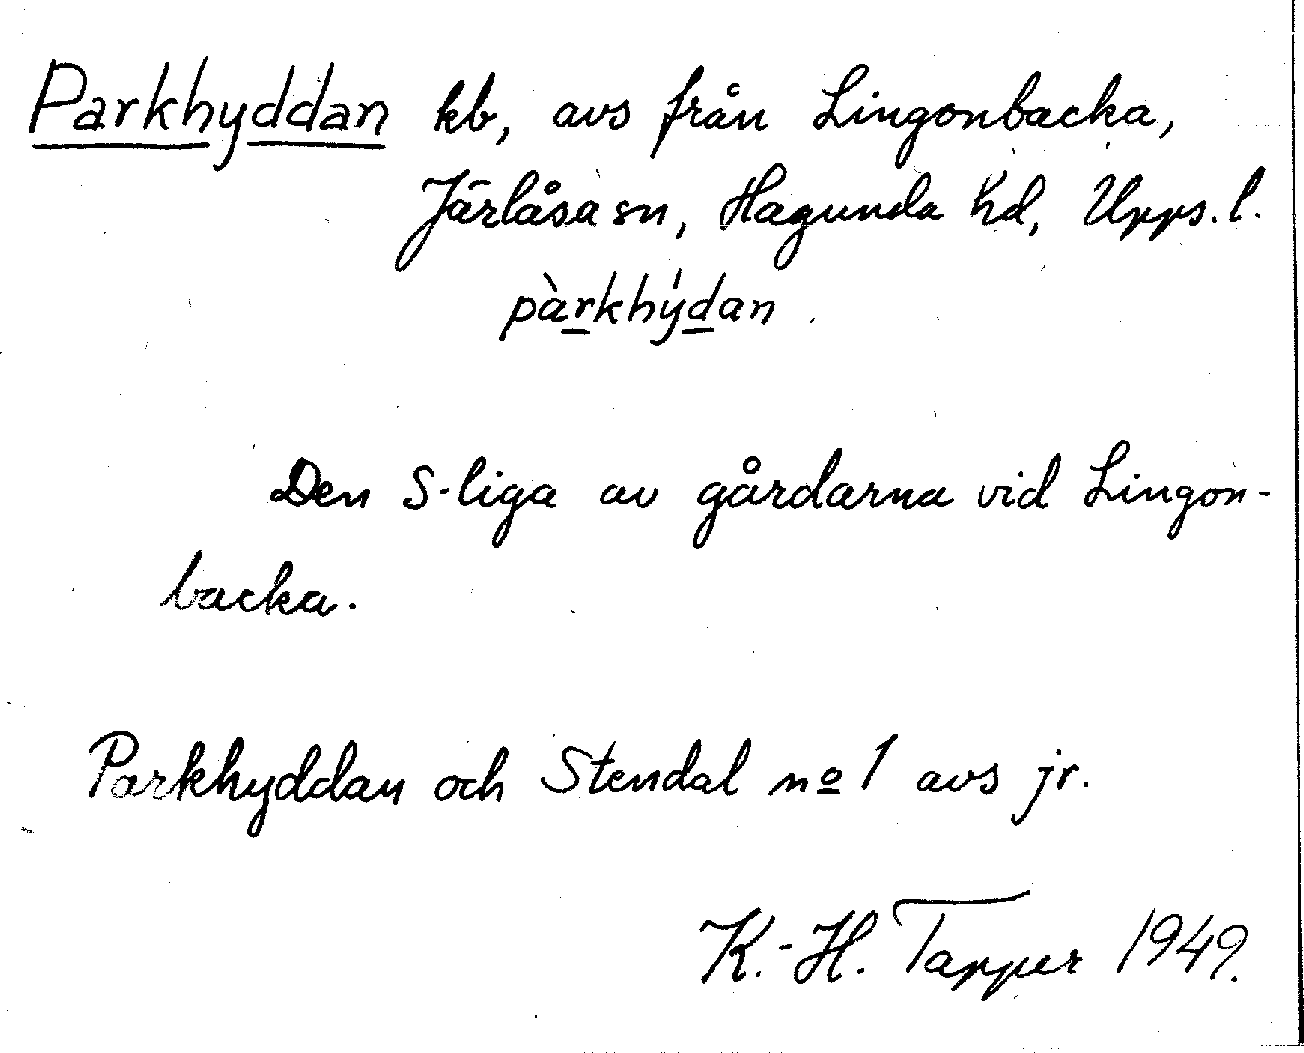 Parkhyddan kb, avs från Lingonbacka,
Järlåsa sn, Hagunda hd, Upps. l.
pàrkhy̍dan
Den S-liga av gårdarna vid Lingon-
backa.
Parkhyddan och Stendal nº 1 avs jr.
K.-H. Tapper 1949.